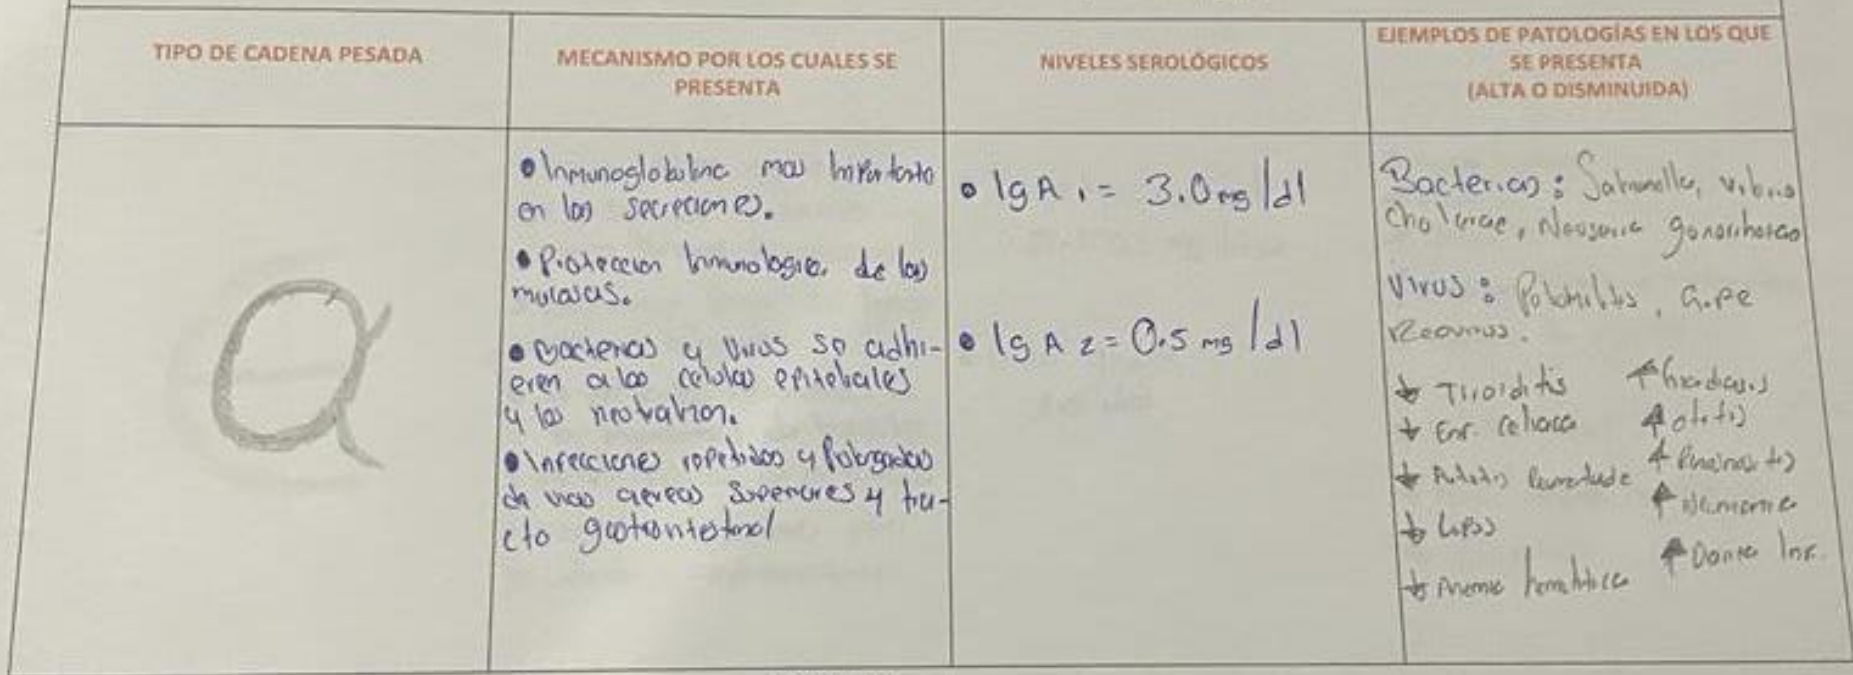 TIPO DE CADENA PESADA
MECANISMO POR LOS CUALES SE
PRESENTA
NIVELES SEROLÓGICOS
EJEMPLOS DE PATOLOGÍAS EN LOS QUE
SE PRESENTA
(ALTA O DISMINUIDA)
α
• Inmunoglobulina mas importante
en las secreciones.
• Proteccion Inmunologica de las
mucosas.
• Bacterias y Virus se adhi-
eren a las celulas epiteliales
y las neutralizan.
• Infecciones repetidas y
de vias aereas superiores y tra-
cto gastrointestinal
• IgA 1 = 3.0 mg/dl
• IgA 2 = 0.5 mg/dl
Bacterias: Salmonella, vibrio
cholerae, gonorrhoeae
Virus: Poliomielitis, Gripe
Reovirus.
↓ Tiroiditis ↑ Giardiasis
↓ Enf. celiaca ↑ Otitis
↓ Artritis ↑ Sinusitis
↓ Lupus ↑ Neumonia
↓ Anemia hemolitica ↑ Inf.